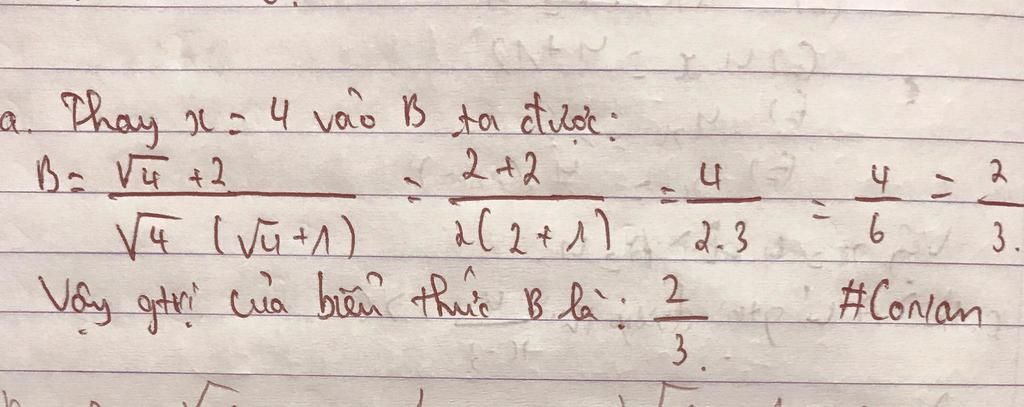 a. Thay x = 4 vào B ta được:
B = (√4 + 2) / (√4 (√4 + 1)) = (2 + 2) / (2(2 + 1)) = 4 / (2.3) = 4/6 = 2/3.
Vậy gtrị của biểu thức B là: 2/3. #Conan